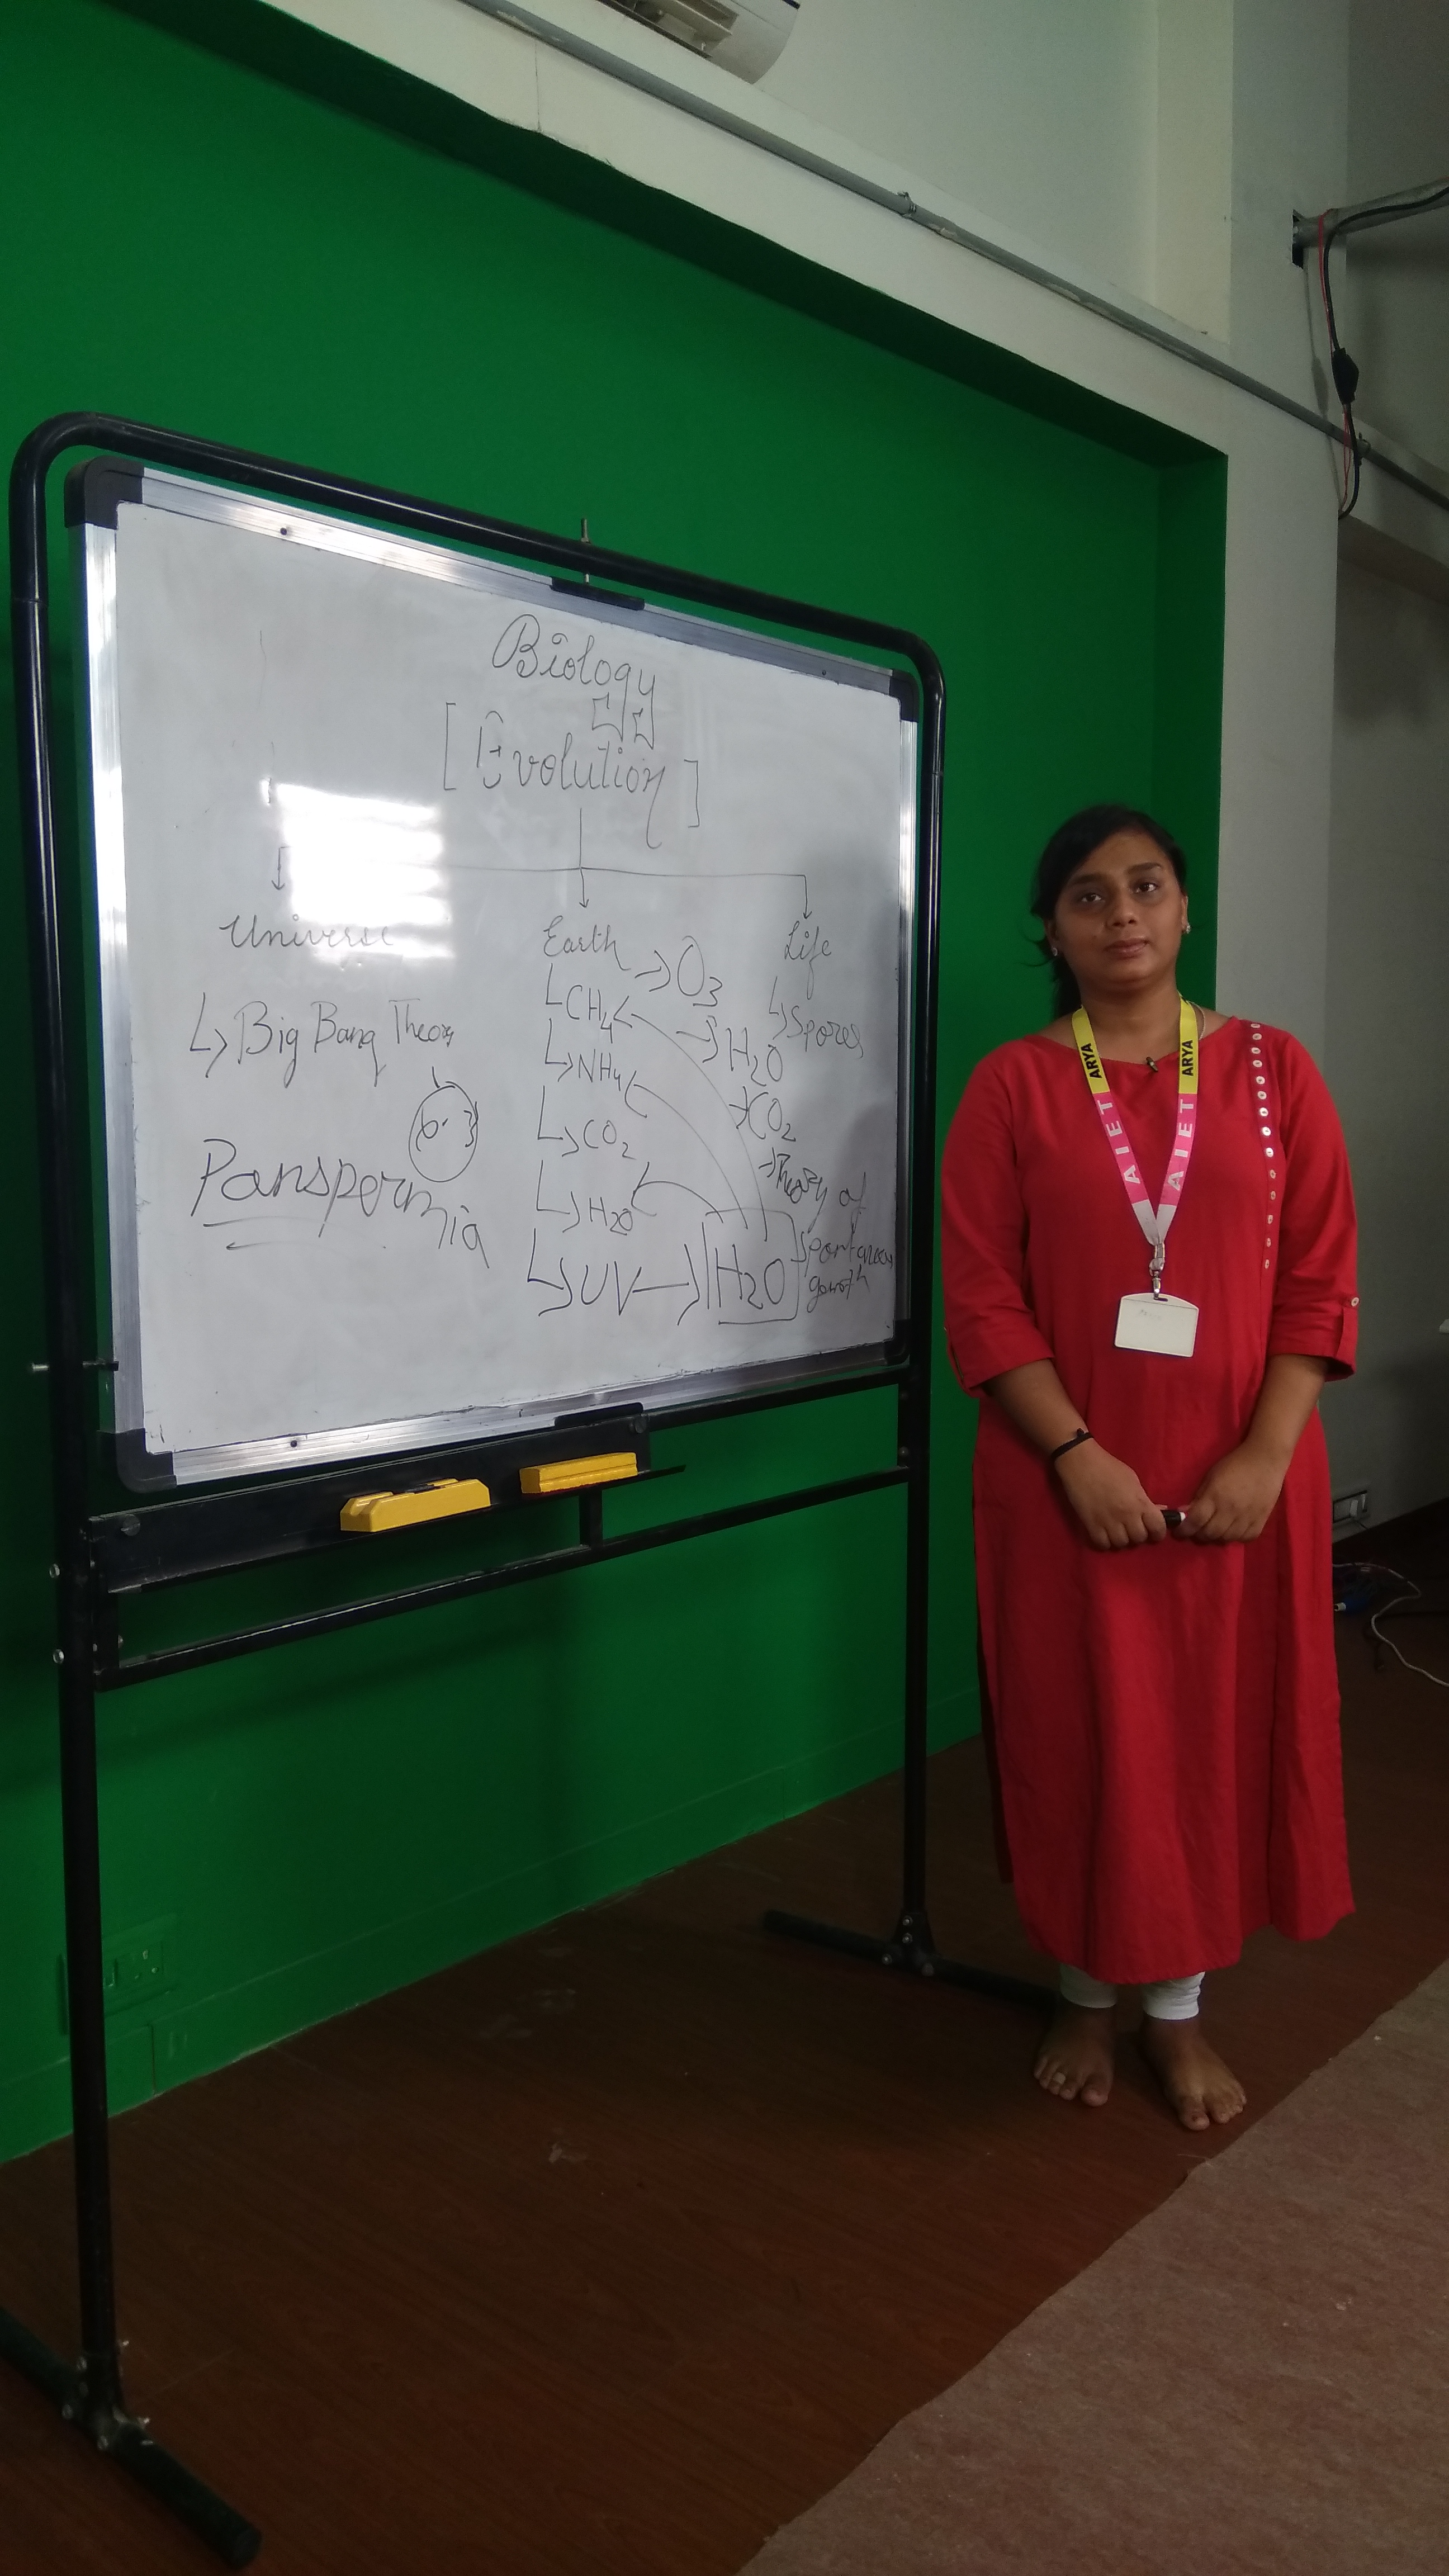 Biology
[Evolution]
Universe
↳ Big Bang Theory
Panspermia
Earth
↳ CH4
↳ NH4
↳ CO2
↳ H2O
↳ UV → [H2O]
→ O3
→ H2O
→ CO2
→ Theory of
Life
↳ Spores
ARYA
ARYA
AIET
AIET